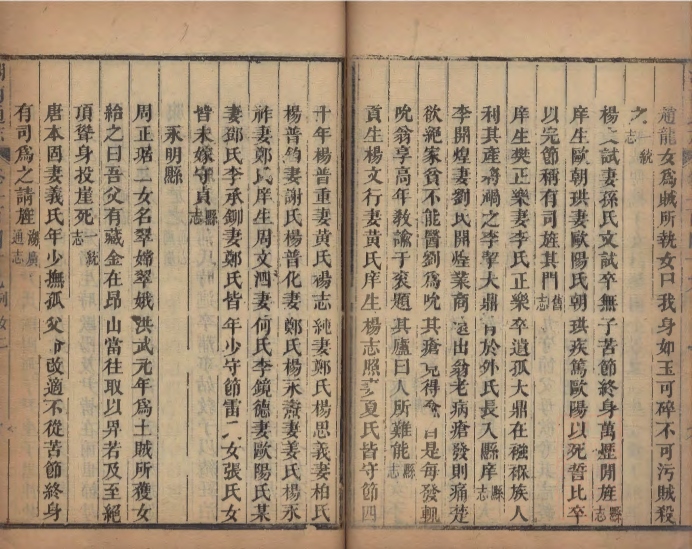 道龍女爲賊所執女曰我身如玉可碎不可污賊殺
之一統志
楊文試妻孫氏文試卒無子苦節終身萬歷間旌縣志
庠生歐朝珙妻歐陽氏朝珙疾篤歐陽以死誓比卒
以完節稱有司旌其門舊志
庠生樊正樂妻李氏正樂卒遺孤大鼎在襁褓族人
利其產將禍之李挈大鼎育於外氏長入縣庠縣志
李開煌妻劉氏開煌業商遠出翁老病瘡發則痛楚
欲絕家貧不能醫劉爲吮其瘡 得 自是每發輒
吮翁享高年教諭于衮題其廬曰人所難能縣志
貢生楊文行妻黃氏庠生楊志照妻夏氏皆守節四
十年楊普重妻黃氏楊志純妻鄭氏楊思義妻柏氏
楊普 妻謝氏楊普化妻鄭氏楊永壽妻姜氏楊永
祚妻鄭氏庠生周文鸿妻何氏李鏡德妻歐陽氏某
妻鄧氏李承鉚妻鄭氏皆年少守節雷二女張氏女
皆未嫁守貞縣志
永明縣
周正琚二女名翠嬌翠娥洪武元年爲土賊所獲女
給之曰吾父有藏金在昂山當往取以畀若及至絕
頂聳身投崖死一統志
唐本固妻義氏年少撫孤父命改適不從苦節終身
有司爲之請旌湖廣通志